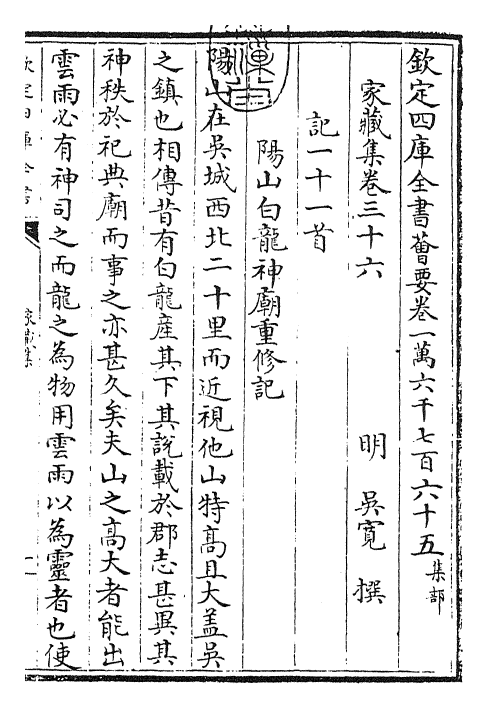 欽定四庫全書薈要卷一萬六千七百六十五 集部
家藏集卷三十六 明 吳寬 撰
記一十一首
陽山白龍神廟重修記
陽山在吳城西北二十里而近視他山特高且大蓋吳
之鎮也相傳昔有白龍産其下其說載於郡志甚異其
神秩於祀典廟而事之亦甚久矣夫山之高大者能出
雲雨必有神司之而龍之為物用雲雨以為靈者也使
欽定四庫全書
家藏集
一